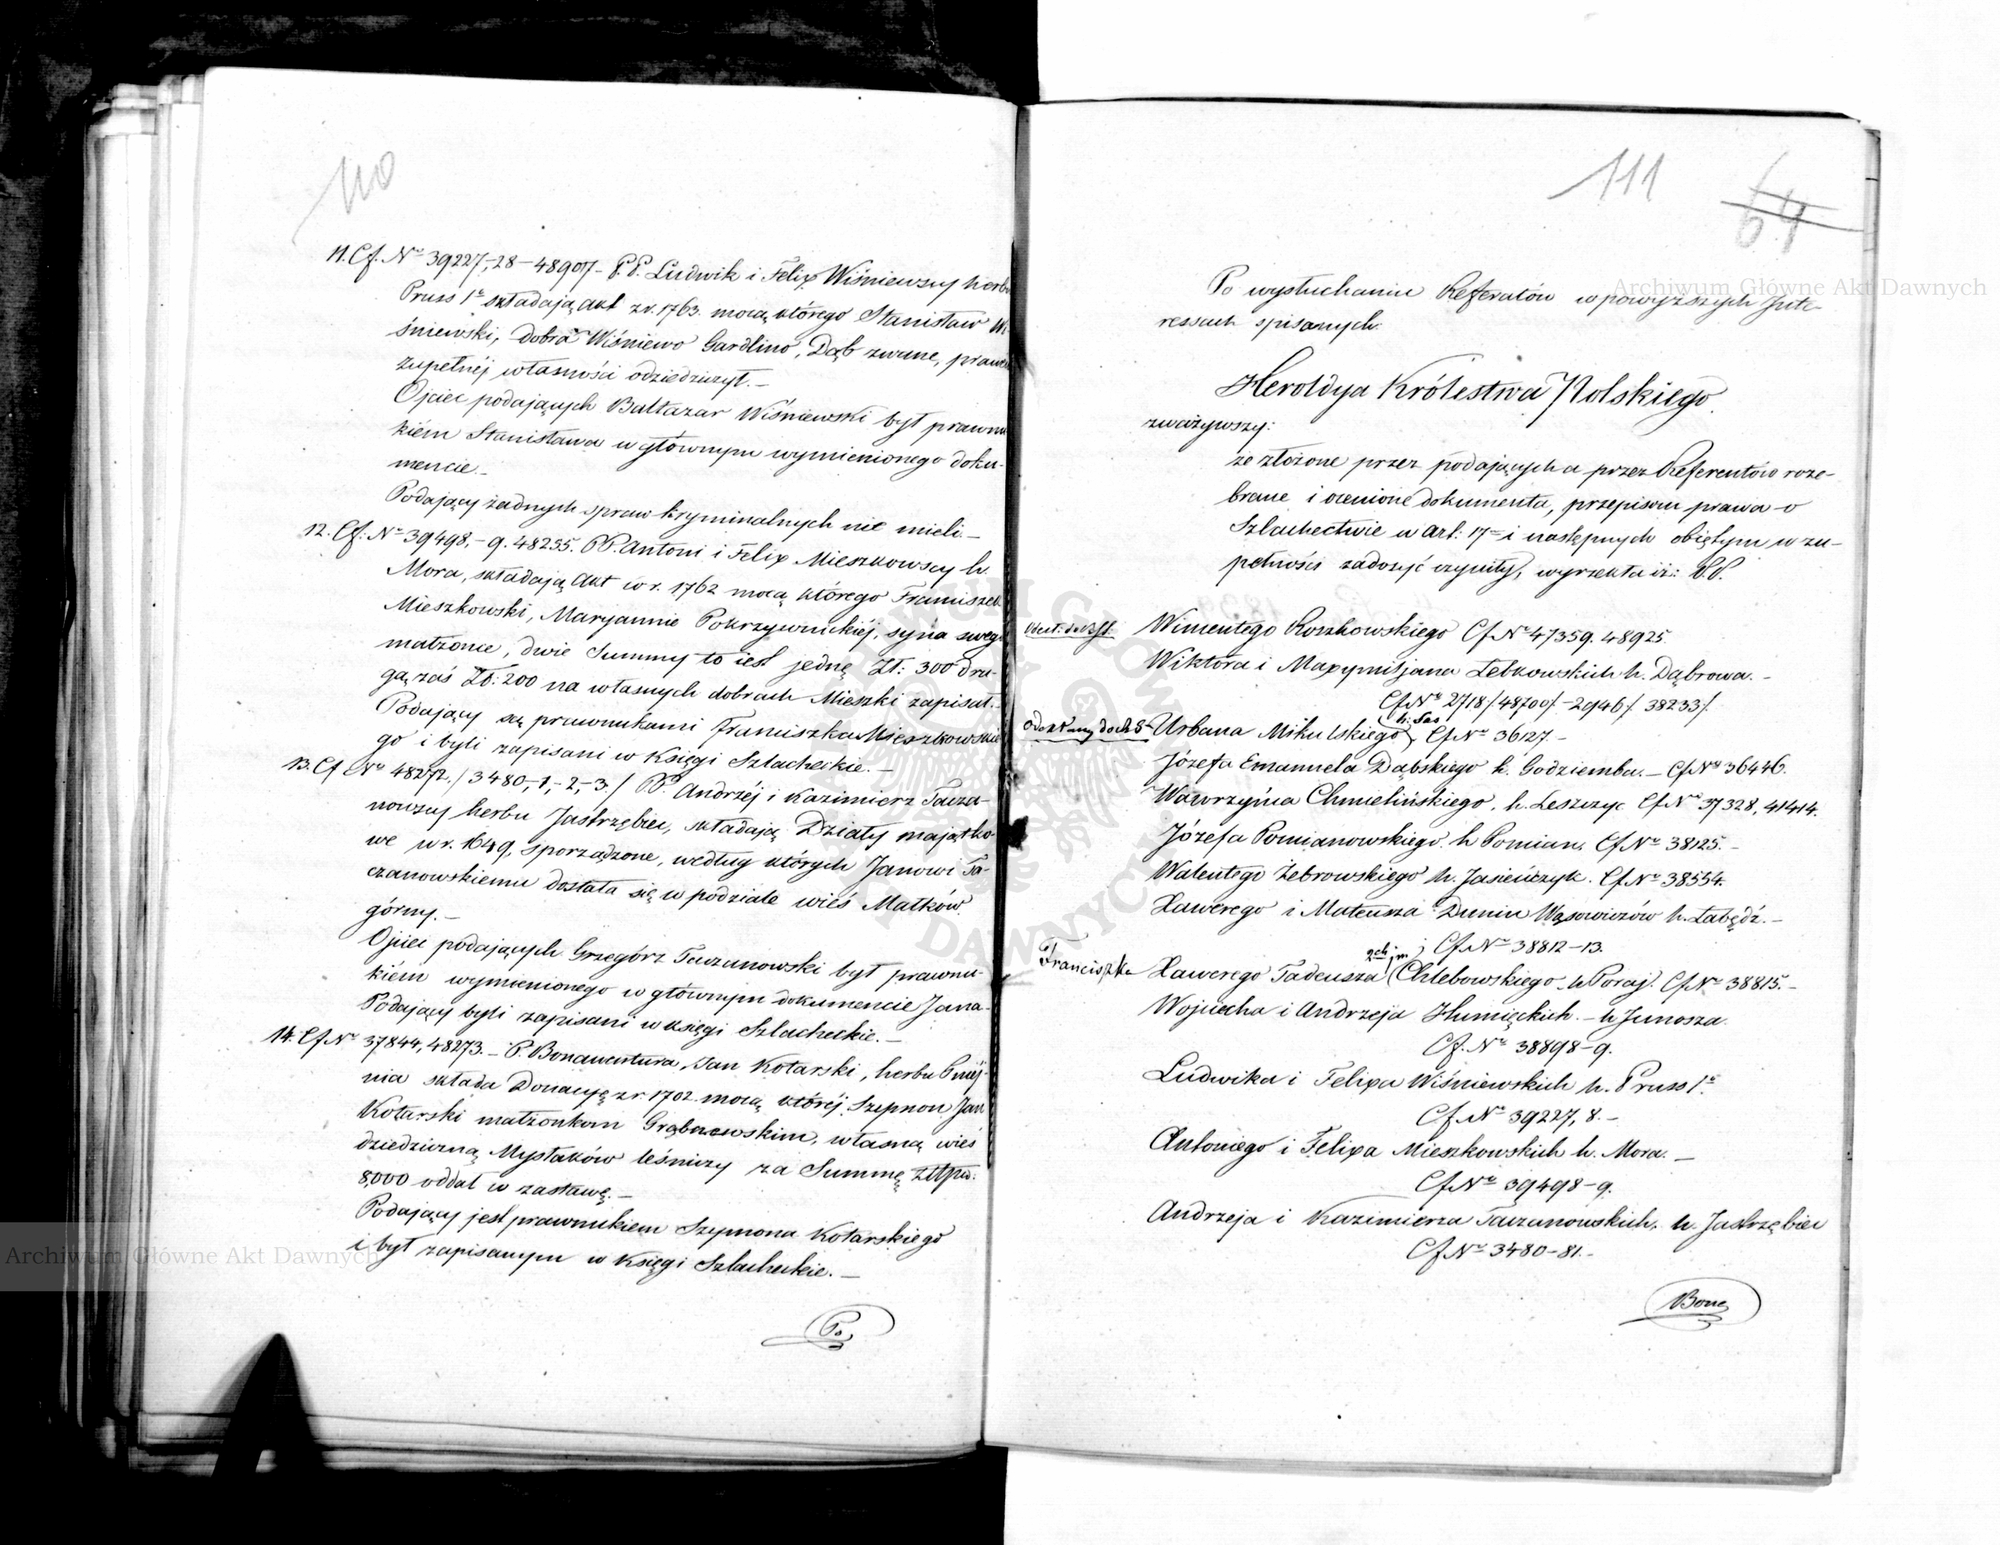 110
11. Cf. No 39227,-28-48907- P.P. Ludwik i Felix Wiśniewscy herbu
Pruss 1o składają akt z r. 1763. mocą którego Stanisław Wi
śniewski, dobra Wiśniewo Gardlino, Dąb zwane, prawem
zupełnéj własności odziedziczył. —
Ojciec podających Baltazar Wiśniewski był prawnu
kiem Stanisława w głównym wymienionego doku-
mencie. —
Podający żadnych spraw kryminalnych nie mieli. —
12. Cf. No 39498,-9. 48235. PP. Antoni i Felix Mieszkowscy h.
Mora, składają Akt w r. 1762 mocą którego Franciszek
Mieszkowski, Maryannie Pokrzywnickiéj, syna swego
małżonce, dwie Summy to iest jednę Zł: 300 dru-
gą zaś Zł: 200 na własnych dobrach Mieszki zapisał. —
Podający są prawnukami Franciszka Mieszkowskie
go i byli zapisani w Księgi Szlacheckie. —
13. Cf No 48272./3480,-1,-2,-3./ PP. Andrzéj i Kazimierz Tacza-
nowscy herbu Jastrzębiec, składają Działy majątko-
we w r. 1649, sporządzone, według których Janowi Ta-
czanowskiemu dostała się w podziale wieś Małków
górny. —
Ojciec podających Grzegórz Taczanowski był prawnu-
kiém wymienionego w głównym dokumencie Jana -
Podający byli zapisani w księgi Szlacheckie. —
14. Cf No 37844, 48273. - P. Bonawentura, Jan Kotarski, herbu Pniéj-
nia składa Donacyę z r. 1702. mocą któréj Szymon Jan
Kotarski małżonkom Grabowskim, własną wieś
dziedziczną Mysłaków leśniczy za Summę złtpol:
8,000 oddał w zastawę. —
Podający jest prawnukiem Szymona Kotarskiego
i był zapisanym w Księgi Szlacheckie. —
Po
111
64
Po wysłuchaniu Referatów w powyższych Inte-
ressach spisanych.
Heroldya Królestwa Polskiego
zważywszy:
że złożone przez podających a przez Referentów roze-
brane i ocenione dokumenta, przepisom prawa o
Szlachectwie w art: 17m i następnych objętym, w zu-
pełności zadosyć czyniły, wyrzekła iż: P.P.
Wincentego Roszkowskiego Cf No 47359. 48925
Wiktora i Maxymiljana Łetkowskich h. Dąbrowa. -
Cf No 2718/48700/-2946/. 38233/.
h: Sas
Urbana Mikulskiego, Cf No 36127. -
Józefa Emanuela Dąbskiego h. Godziemba. — Cf No 36446.
Wawrzyńca Chmielińskiego. h. Leszczyc Cf No 37328, 41414.
Józefa Pomianowskiego h Pomian. Cf No 38125. -
Walentego Żebrowskiego h. Jasieńczyk. Cf No 38554.
Xawerego i Mateusza Dunin Wąsowiczów h. Łabędź. -
Cf No 38812-13.
Franciszka Xawerego Tadeusza 2ch im. Chlebowskiego h Poraj. Cf No 38815. -
Wojciecha i Andrzeja Humięckich. - h Junosza.
Cf. No 38898-9.
Ludwika i Felixa Wiśniewskich h. Pruss 1o
Cf. No 39227, 8. -
Antoniego i Felixa Mieszkowskich h. Mora. —
Cf No 39498-9.
Andrzeja i Kazimierza Taczanowskich, h. Jastrzębiec
Cf No 3480-81. -
Bona
Archiwum Główne Akt Dawnych
Archiwum Główne Akt Dawnych